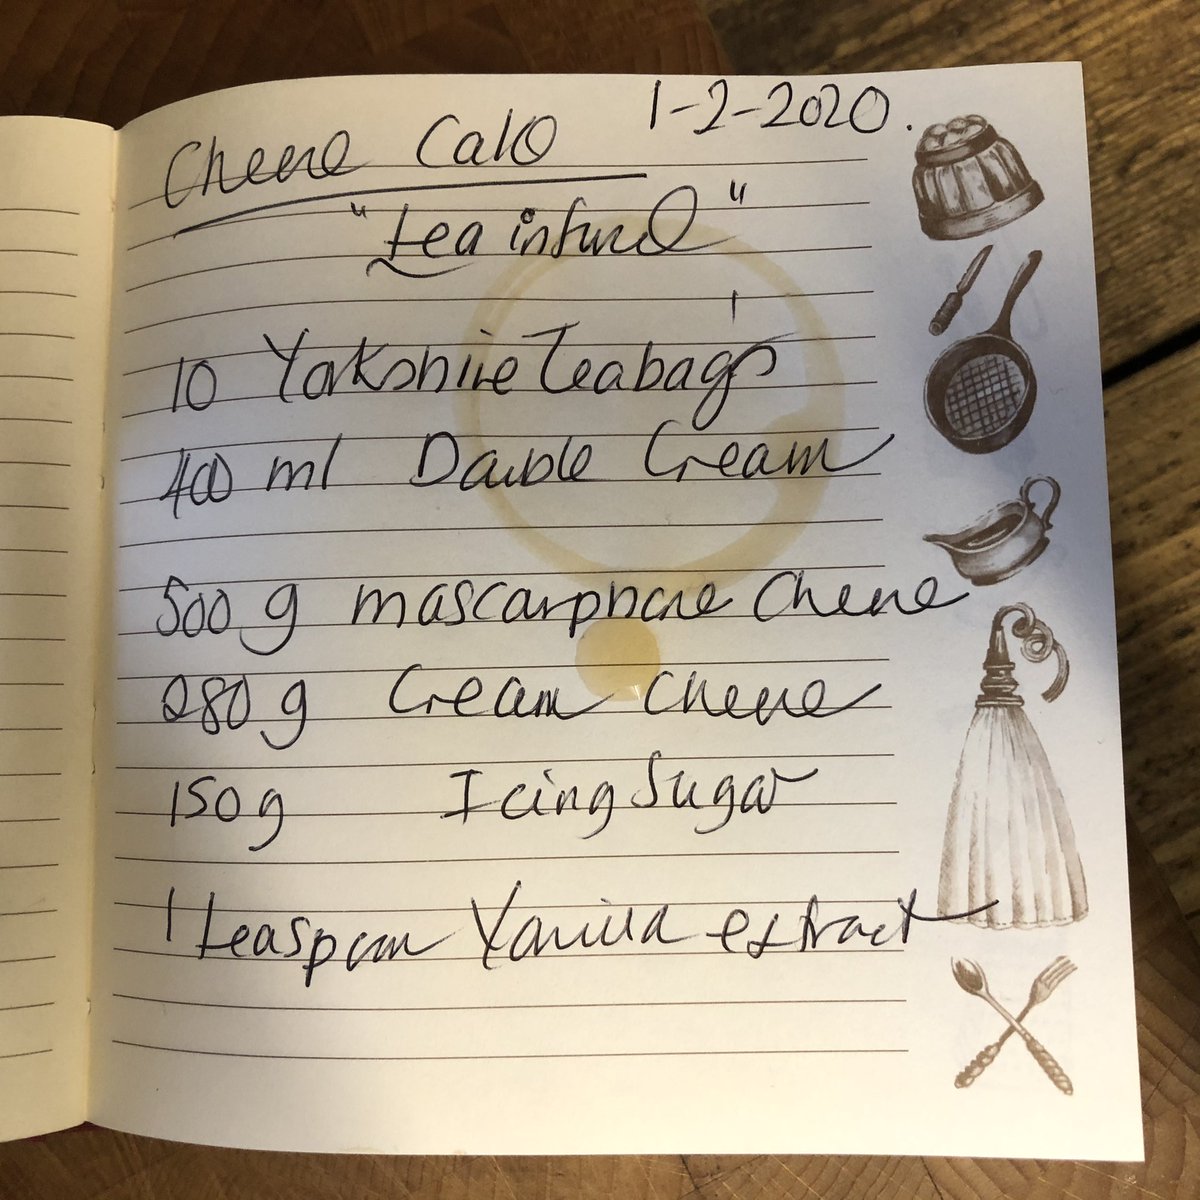 Cheese Cake 1-2-2020.
"tea infused"
10 Yorkshire Teabag's
400 ml Double Cream
500 g mascarphone Cheese
280 g Cream Cheese
150g Icing Sugar
1 teaspoon Vanilla extract